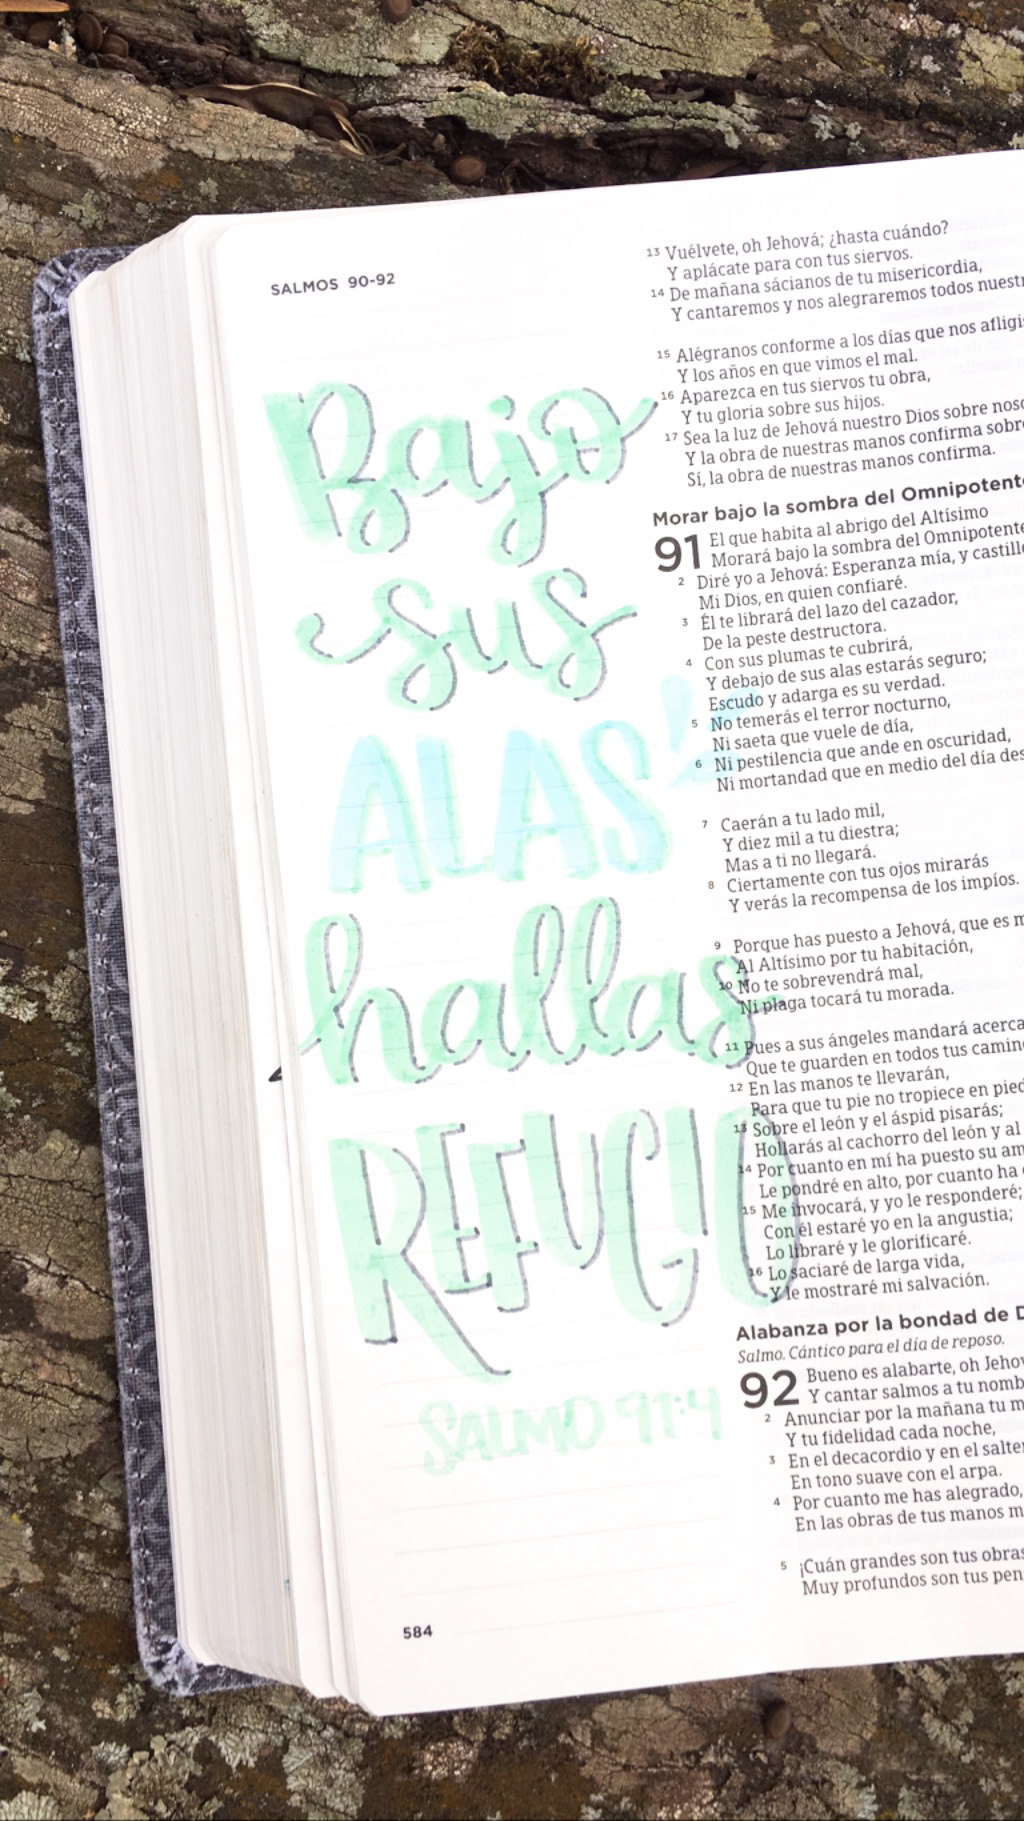 SALMOS 90-92
Bajo
sus
ALAS
hallas
REFUGIO
SALMO 91:4
584
13 Vuélvete, oh Jehová; ¿hasta cuándo?
Y aplácate para con tus siervos.
14 De mañana sácianos de tu misericordia,
Y cantaremos y nos alegraremos todos
15 Alégranos conforme a los días que nos
Y los años en que vimos el mal.
16 Aparezca en tus siervos tu obra,
Y tu gloria sobre sus hijos.
17 Sea la luz de Jehová nuestro Dios sobre
Y la obra de nuestras manos confirma
Sí, la obra de nuestras manos confirma.
Morar bajo la sombra del Omnipotente
91 El que habita al abrigo del Altísimo
Morará bajo la sombra del Omnipotente
2 Diré yo a Jehová: Esperanza mía, y
Mi Dios, en quien confiaré.
3 Él te librará del lazo del cazador,
De la peste destructora.
4 Con sus plumas te cubrirá,
Y debajo de sus alas estarás seguro;
Escudo y adarga es su verdad.
5 No temerás el terror nocturno,
Ni saeta que vuele de día,
6 Ni pestilencia que ande en oscuridad,
Ni mortandad que en medio del día
7 Caerán a tu lado mil,
Y diez mil a tu diestra;
Mas a ti no llegará.
8 Ciertamente con tus ojos mirarás
Y verás la recompensa de los impíos.
9 Porque has puesto a Jehová, que es
Al Altísimo por tu habitación,
10 No te sobrevendrá mal,
Ni plaga tocará tu morada.
11 Pues a sus ángeles mandará acerca
Que te guarden en todos tus
12 En las manos te llevarán,
Para que tu pie no tropiece en
13 Sobre el león y el áspid pisarás;
Hollarás al cachorro del león y al
14 Por cuanto en mí ha puesto su
Le pondré en alto, por cuanto ha
15 Me invocará, y yo le responderé;
Con él estaré yo en la angustia;
Lo libraré y le glorificaré.
16 Lo saciaré de larga vida,
Y le mostraré mi salvación.
Alabanza por la bondad de
Salmo. Cántico para el día de reposo.
92 Bueno es alabarte, oh
Y cantar salmos a tu
2 Anunciar por la mañana tu
Y tu fidelidad cada noche,
3 En el decacordio y en el
En tono suave con el arpa.
4 Por cuanto me has alegrado,
En las obras de tus manos
5 ¡Cuán grandes son tus
Muy profundos son tus